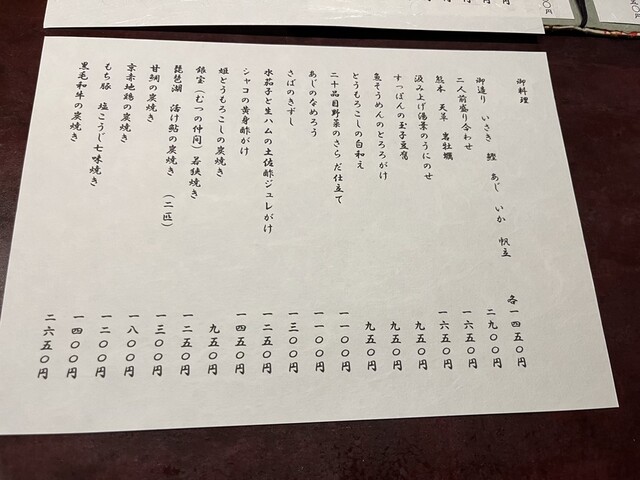 御料理
御造り いさき 鰹 あじ いか 帆立 各一四五〇円
二人前盛り合わせ 二九〇〇円
熊本 天草 岩牡蠣 一六五〇円
汲み上げ湯葉のうにのせ 一六五〇円
すっぽんの玉子豆腐 九五〇円
魚そうめんのとろろがけ 九五〇円
とうもろこしの白和え 九五〇円
二十品目野菜のさらだ仕立て 一一〇〇円
あじのなめろう 一一〇〇円
さばのきずし 一三〇〇円
水茄子と生ハムの土佐酢ジュレがけ 一二五〇円
シャコの黄身酢がけ 一四五〇円
姫とうもろこしの炭焼き 九五〇円
銀宝(むつの仲間)若狭焼き 一二五〇円
琵琶湖 活け鮎の炭焼き (二匹) 一三〇〇円
甘鯛の炭焼き 一八〇〇円
京赤地鶏の炭焼き 一二〇〇円
もち豚 塩こうじ七味焼き 一四〇〇円
黒毛和牛の炭焼き 二六五〇円